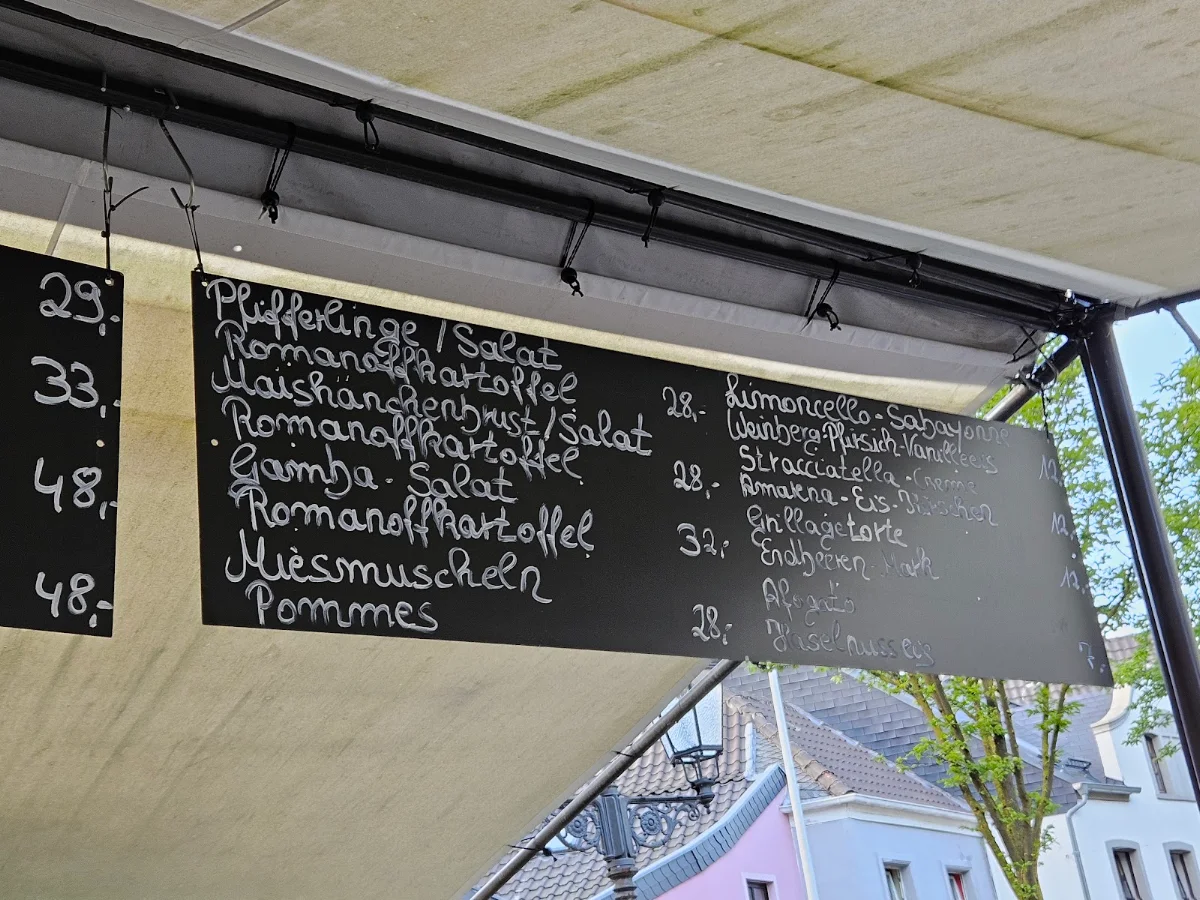 29,-
33,-
48,-
48,-
Pfifferlinge / Salat
Romanoffkartoffel 28,-
Maishänchenbrust / Salat
Romanoffkartoffel 28,-
Gamba - Salat
Romanoffkartoffel 32,-
Miesmuscheln
Pommes 28,-
Limoncello - Sabayonne
Weinberg-Pfirsich-Vanilleeis 12,-
Stracciatella - Creme
Amarena - Eis - Kirschen 12,-
Grillagetorte
Erdbeeren - Mark 12,-
Afogato
Haselnusseis 7,-